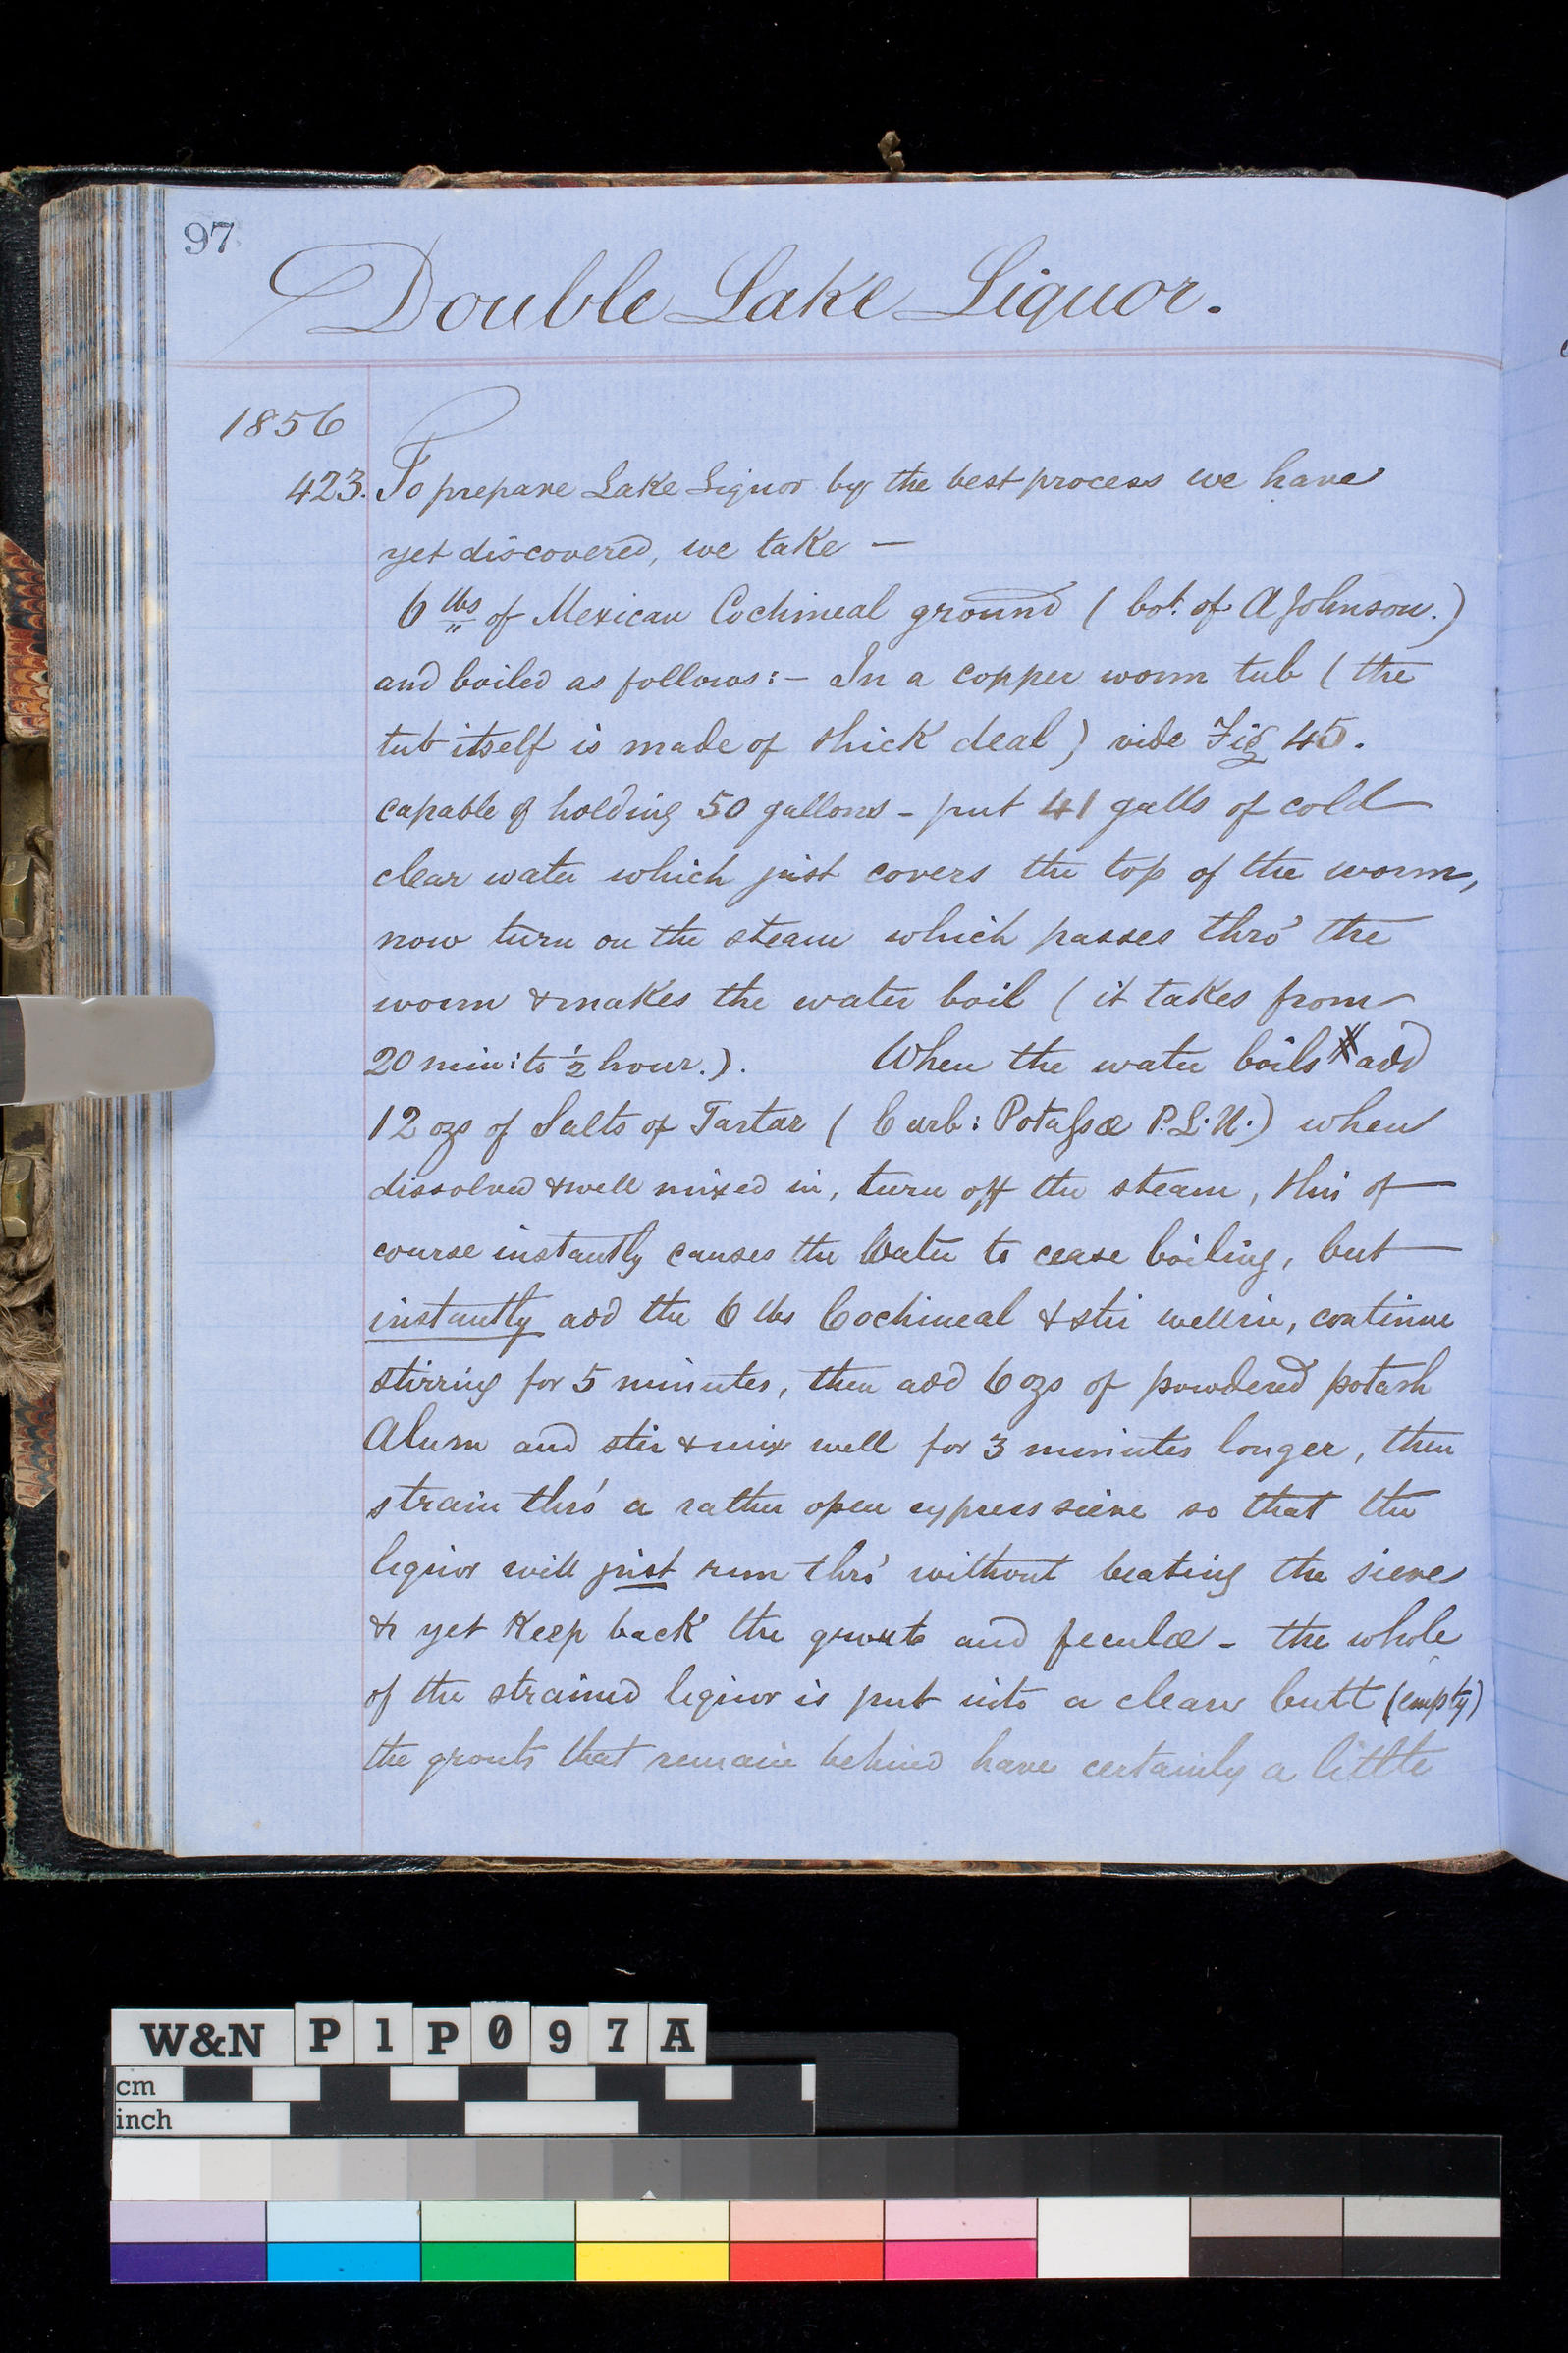 97
Double Lake Liquor.
1856
423. To prepare Lake Liquor by the best process we have
yet discovered, we take —
6 lbs of Mexican Cochineal ground ( bot. of A Johnson.)
and boiled as follows:— In a copper worm tub ( the
tub itself is made of thick deal ) vide Fig 45.
capable of holding 50 gallons - put 41 galls of cold
clear water which just covers the top of the worm,
now turn on the steam which passes thro' the
worm & makes the water boil ( it takes from
20 min: to ½ hour.). When the water boils add
12 ozs of Salts of Tartar ( Carb: Potassæ P.L.U.) when
dissolved & well mixed in, turn off the steam, this of
course instantly causes the Water to cease boiling, but
instantly add the 6 lbs Cochineal & stir well in, continue
stirring for 5 minutes, then add 6 ozs of powdered potash
Alum and stir & mix well for 3 minutes longer, then
strain thro' a rather open cypress sieve so that the
liquor will just run thro' without beating the sieve
& yet Keep back the grouts and feculæ - the whole
of the strained liquor is put into a clean butt (empty)
the grouts that remain behind have certainly a little
W&N P1P097A
cm
inch